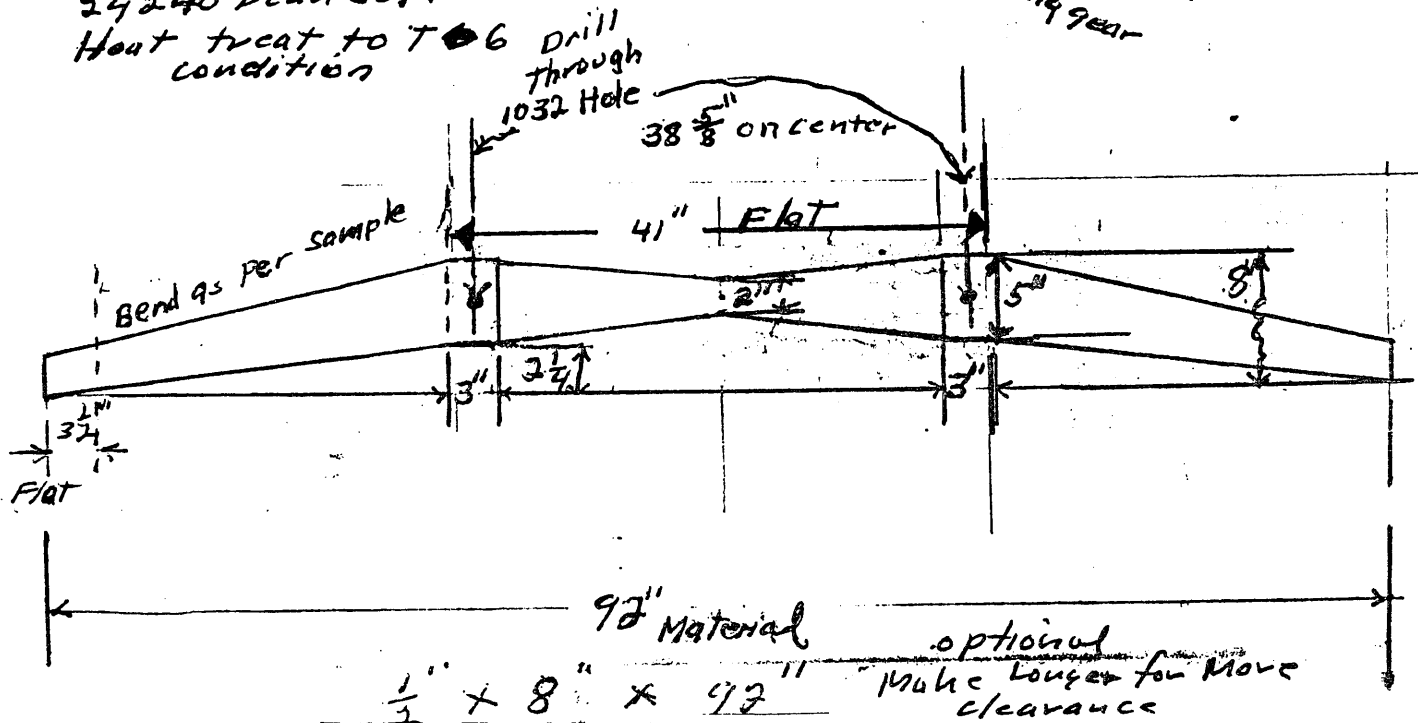 Heat treat to T 6
condition
gear
Drill
Through
1032 Hole
38 5/8" on center
Bend as per sample
41" Flat
2"
5"
8"
2 1/4
3"
3"
Flat
92"
Material
1/2" x 8" x 92"
optional
Make Longer for More
clearance